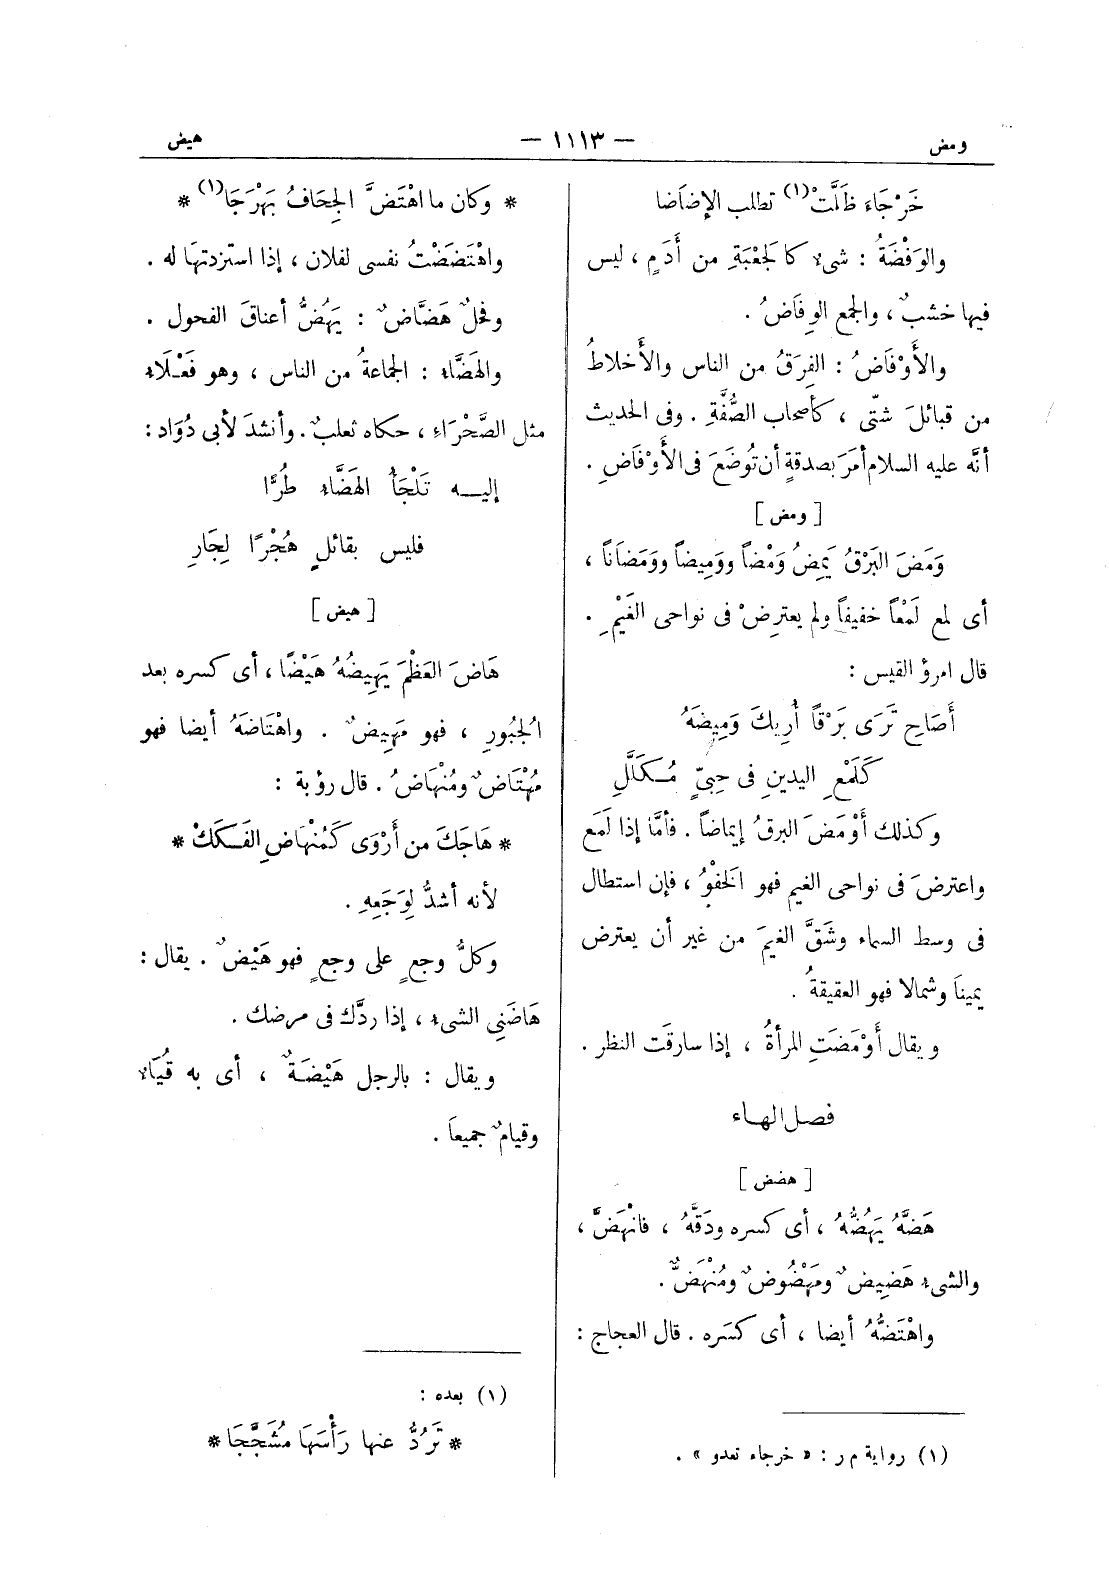 ومض
— ١١١٣ —
هيض
خَرْجَاءَ ظَلَّتْ(١) تطلب الإضَاضَا
والوَفْضَةُ : شىء كالجَعْبَةِ من أَدَمٍ ، ليس
فيها خشبٌ ، والجمع الوِفَاضُ .
والأَوْفَاضُ : الفِرَقُ من الناس والأَخلاطُ
من قبائلَ شتّى ، كأصحاب الصُّفَّةِ . وفى الحديث
أنّه عليه السلام أمَرَ بصدقةٍ أن تُوضَعَ فى الأَوْفَاضِ .
[ ومض ]
وَمَضَ البَرْقُ يَمِضُ وَمْضاً ووَمِيضاً ووَمَضَاناً ،
أى لمع لَمْعاً خفيفاً ولم يعترِضْ فى نواحى الغَيْمِ .
قال امرؤ القيس :
أَصَاحِ تَرَى بَرْقاً أُرِيكَ وَمِيضَهُ
كَلَمْعِ اليدينِ فى حَبِىٍّ مُكَلَّلِ
وكذلك أَوْمَضَ البرقُ إيماضاً . فأمَّا إذا لَمَع
واعترضَ فى نواحى الغيم فهو الخَفْوُ ، فإن استطال
فى وسط السماء وشَقَّ الغيمَ من غير أن يعترض
يميناً وشمالا فهو العقيقةُ .
ويقال أَوْمَضَتِ المرأةُ ، إذا سارقَت النظر .
فصل الهاء
[ هضض ]
هَضَّهُ يَهُضُّهُ ، أى كسره ودَقَّهُ ، فانْهَضَّ ،
والشىء هَضِيضٌ ومَهْضُوضٌ ومُنْهَضٌّ .
واهْتَضَّهُ أيضا ، أى كسَره . قال العجاج :
(١) رواية م ر : « خرجاء تعدو » .
* وكان ما اهْتَضَّ الجِحَافُ بَهْرَجَا(١) *
واهْتَضَضْتُ نفسى لفلان ، إذا استزدتَها له .
وفحلٌ هَضَّاضٌ : يَهُضُّ أعناقَ الفحول .
والهَضَّاء : الجماعةُ من الناس ، وهو فَعْلَاء
مثل الصَّحْرَاءِ ، حكاه ثعلبٌ . وأنشدَ لأبى دُوَاد :
إليه تَلْجَأُ الهَضَّاء طُرًّا
فليس بقائلٍ هُجْرًا لِجَارِ
[ هيض ]
هَاضَ العَظْمَ يَهِيضُهُ هَيْضًا ، أى كسره بعد
الجُبُورِ ، فهو مَهِيضٌ . واهْتَاضَهُ أيضا فهو
مُهْتَاضٌ ومُنْهَاضٌ . قال رؤبة :
* هَاجَكَ من أَرْوَى كَمُنْهَاضِ الفَكَكْ *
لأنه أشدُّ لِوَجَعِهِ .
وكلُّ وجعٍ على وجعٍ فهو هَيْضٌ . يقال :
هَاضَنِى الشىء ، إذا ردَّك فى مرضك .
ويقال : بالرجل هَيْضَةٌ ، أى به قُيَاء
وقيامٌ جميعاً .
(١) بعده :
* تَرُدُّ عنها رَأْسَهَا مُشَجَّجَا *